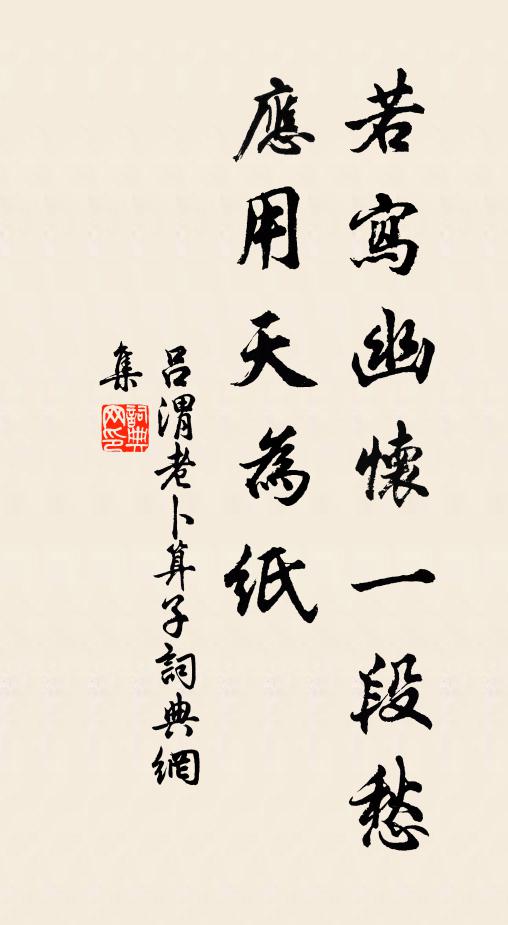 若寫幽懷一段愁
應用天為紙
吕渭老卜算子詞典網
集
詞典网印